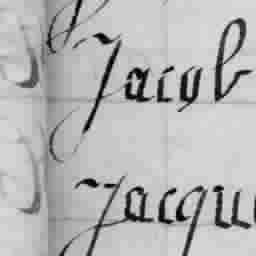 Jacob
Jacqu